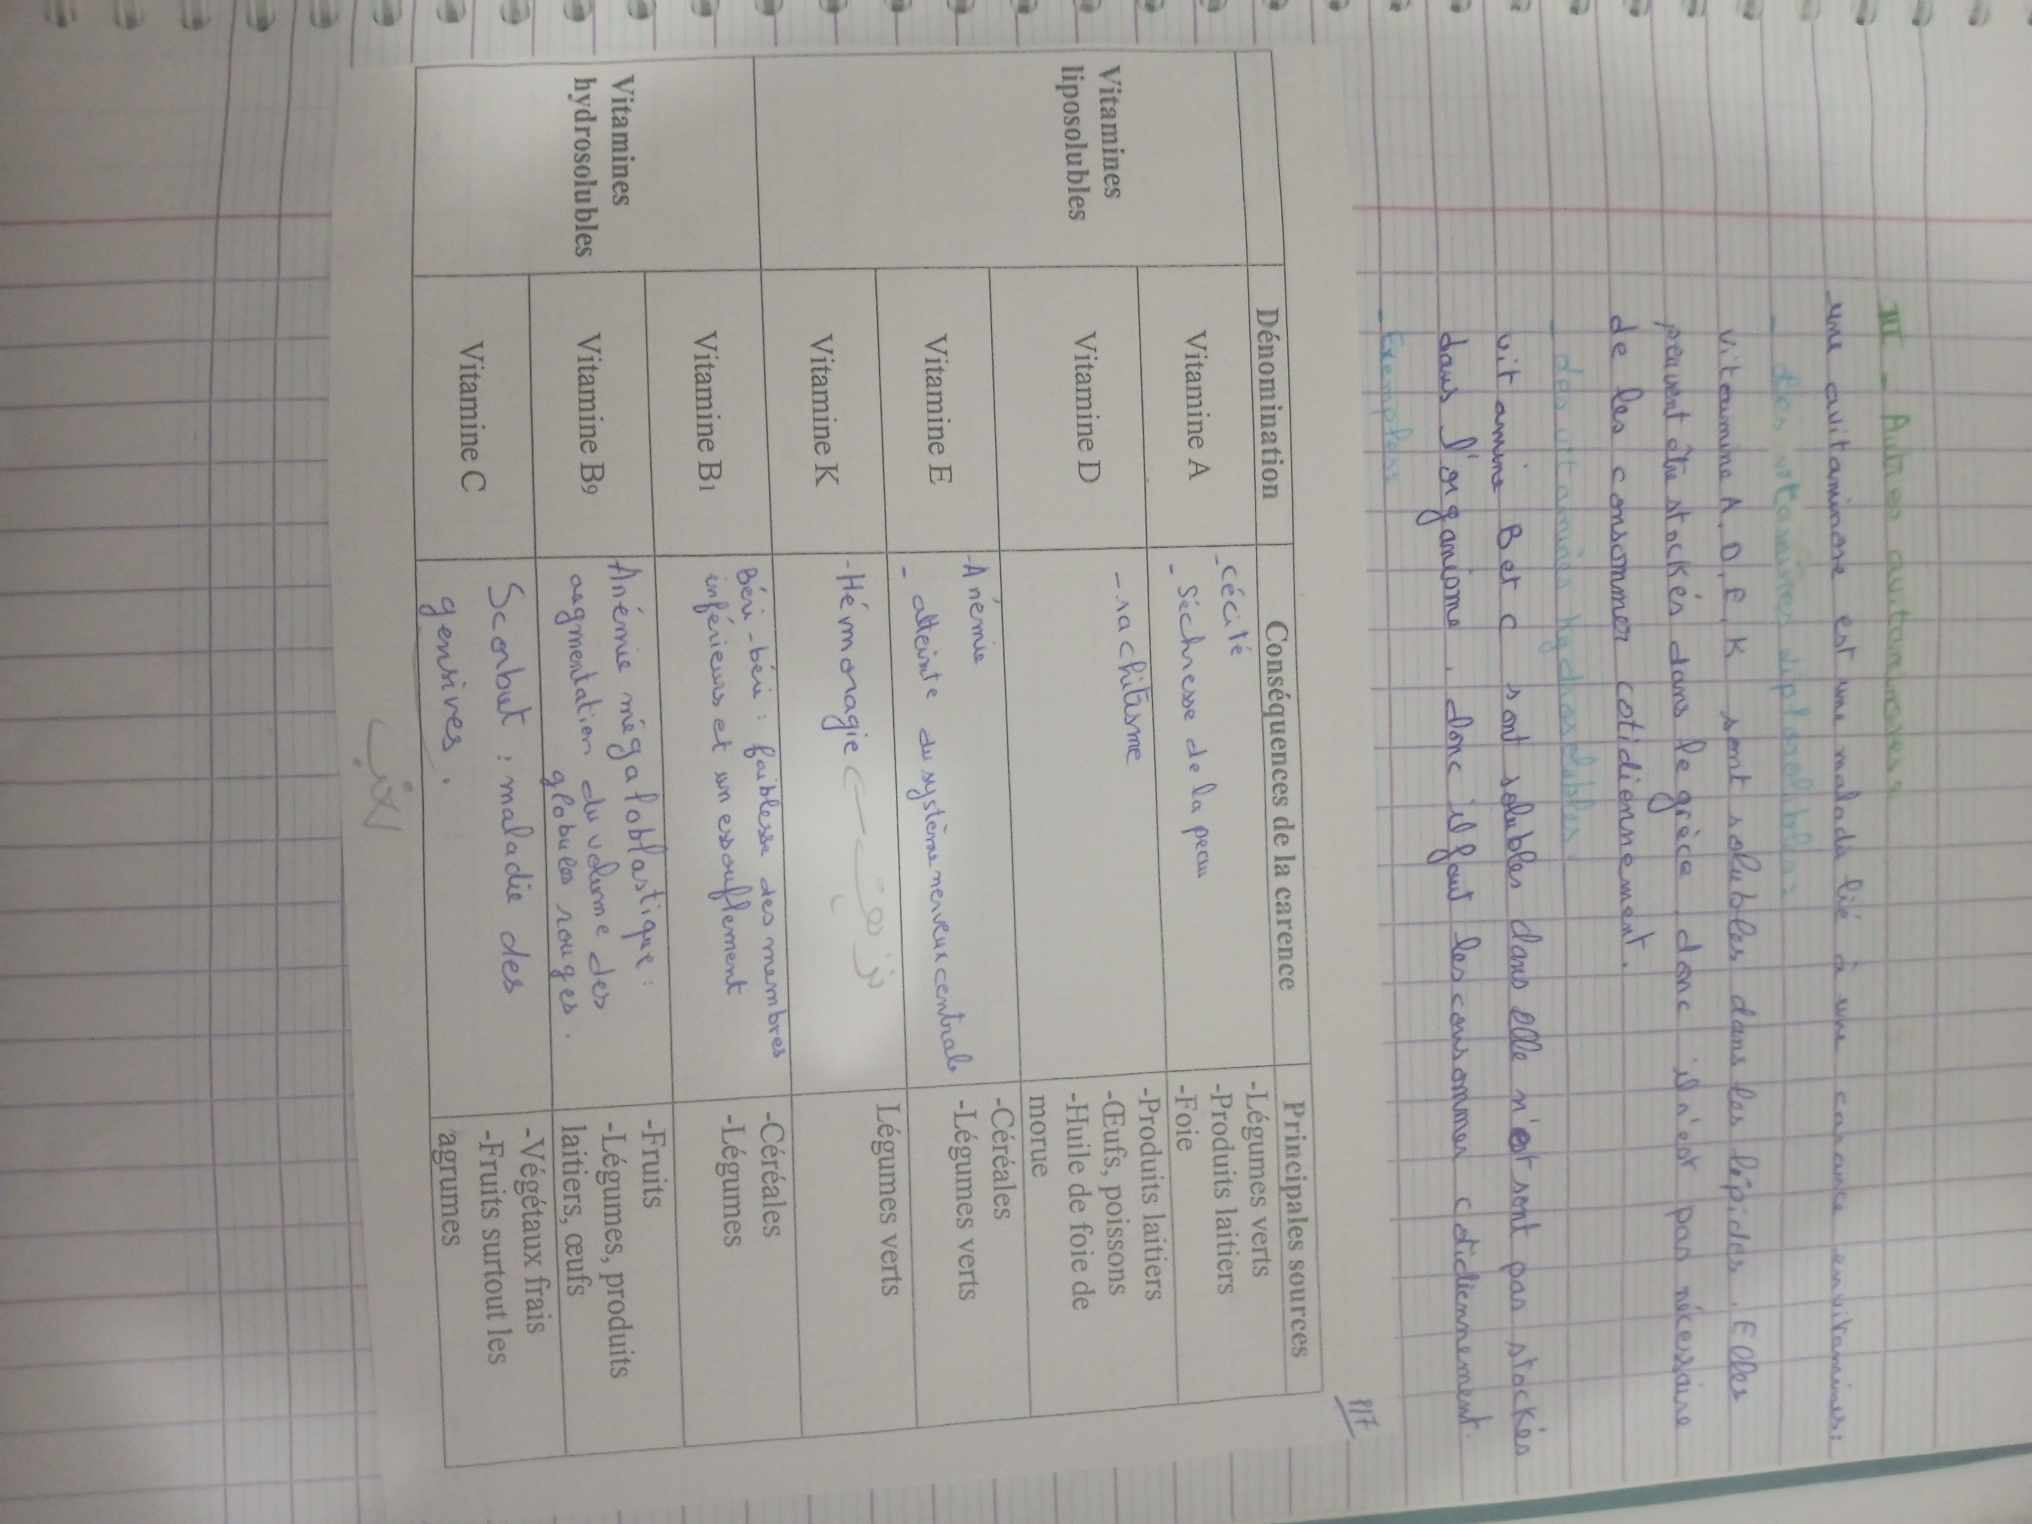 III - Autres avitaminoses:
une avitaminose est une malada lié à une carance envitamines:
- des vitamines liposolubles:
vitaumine A, D, E, K sont solubles dans les lépides. Elles
peuvent être stockés dans le grèce, donc il n'est pas nécessaire
de les consommer cotidiennement.
- des vitamines Hydrosolubles:
vitamine B et C sont solubles dans elle n'est sont pas stockés
dans l'organisme, donc il faut les consommer cotidiennement.
- Exemples:
P17
Dénomination Conséquences de la carence Principales sources
Vitamines
liposolubles
Vitamine A
-Cécité
- Séchresse de la peau
-Légumes verts
-Produits laitiers
-Foie
Vitamine D
- rachitisme
-Produits laitiers
-Œufs, poissons
-Huile de foie de
morue
Vitamine E
-Anémie
- atteinte du système nerveux central
-Céréales
-Légumes verts
Vitamine K
-Hémoragie
Légumes verts
Vitamines
hydrosolubles
Vitamine B1
Béri-béri : faiblesse des membres
inférieurs et un essouflement
-Céréales
-Légumes
Vitamine B9
Anémie mégaloblastique :
augmentation du volume des
globules rouges.
-Fruits
-Légumes, produits
laitiers, œufs
Vitamine C
Scorbut : maladie des
gensives.
-Végétaux frais
-Fruits surtout les
agrumes